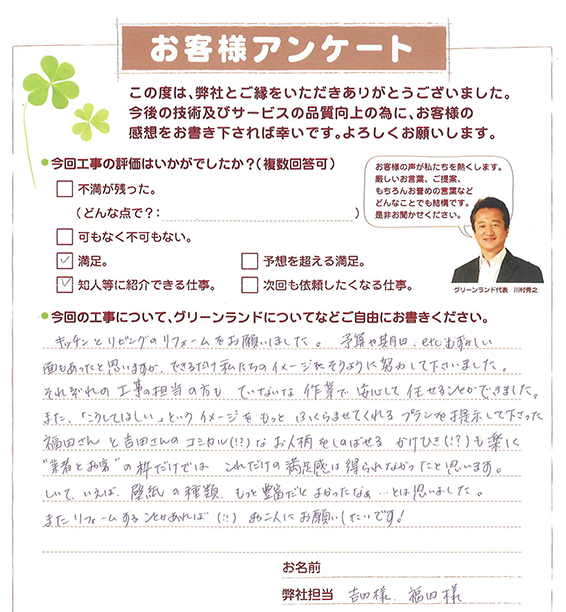 お客様アンケート
この度は、弊社とご縁をいただきありがとうございました。
今後の技術及びサービスの品質向上の為に、お客様の
感想をお書き下されば幸いです。よろしくお願いします。
今回工事の評価はいかがでしたか?(複数回答可)
不満が残った。
(どんな点で?: )
可もなく不可もない。
満足。
予想を超える満足。
知人等に紹介できる仕事。
次回も依頼したくなる仕事。
お客様の声が私たちを熱くします。
厳しいお言葉、ご提案、
もちろんお誉めの言葉など
どんなことでも結構です。
是非お聞かせください。
グリーンランド代表 川村秀之
今回の工事について、グリーンランドについてなどご自由にお書きください。
キッチンとリビングのリフォームをお願いしました。予算や期日、etc むずかしい
面もあったと思いますが、できるだけ私たちのイメージにそうように努力して下さいました。
それぞれの工事の担当の方も ていねいな作業で安心して任せることができました。
また、「こうしてほしい」というイメージをもっと ふくらませてくれるプランを提示して下さった
福田さんと吉田さんのコミカル(!?)なお人柄をしのばせる かけひき(!?)も楽しく
"業者とお客"の枠だけでは これだけの満足感は得られなかったと思います。
しいて、いえば、壁紙の種類、もっと豊富だとよかったなぁ…とは思いました。
またリフォームすることがあれば(!!) お二人にお願いしたいです!
お名前
弊社担当 吉田様、福田様